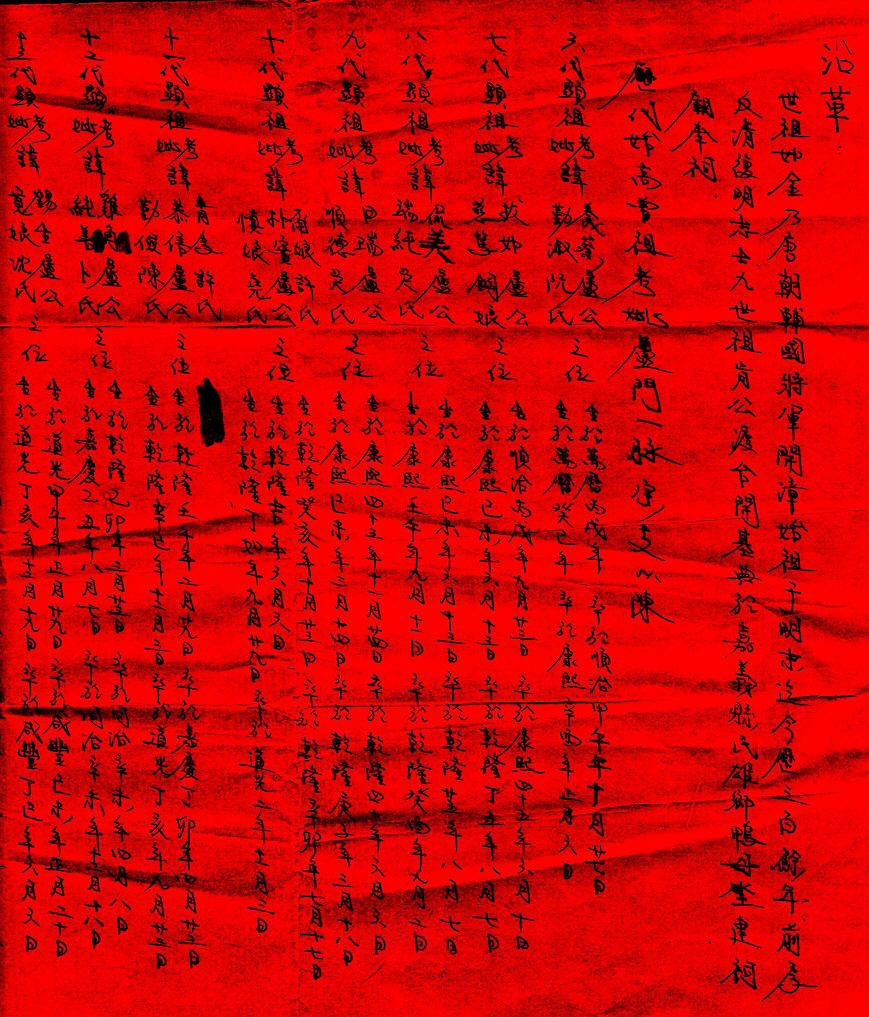 沿革：
世祖如金乃唐朝輔國將軍開漳始祖于明末迄今歷三百餘年前序
反清復明志士九世祖肯公渡台開基典於嘉義縣民雄鄉鴨母坔建祠
朝奉祠
歷代始高曾祖考妣盧門一脉宗支以陳
六代顯祖考妣諱 義 盧公 勤淑阮氏 之位 生於萬曆丙戌年 卒於順治甲午年十月廿七日
生於萬曆癸巳年 卒於康熙辛酉年正月六日
七代顯祖考妣諱 盧公 慈 娘 之位 生於順治丙戌年九月廿三日 卒於康熙四十五年六月十日
生於康熙己未年六月十三日 卒於乾隆丁丑年八月七日
八代顯祖考妣諱 侃美盧公 瑞純吳氏 之位 生於康熙己未年六月十三日 卒於乾隆廿五年八月七日
生於康熙壬午年九月十一日 卒於乾隆癸酉年九月二日
九代顯祖考妣諱 日瑞盧公 順德吳氏 之位 生於康熙四十五年十一月 日 卒於乾隆四十年六月六日
生於康熙己未年三月十四日 卒於乾隆庚子年三月十八日
娘許氏 生於乾隆癸亥年十月廿三日 卒於乾隆辛卯年七月十七日
十代顯祖考妣諱 朴實盧公 慎娘堯氏 之位 生於乾隆 年六月六日
生於乾隆丁卯年九月廿九日 卒於道光二年十一月三日
青 許氏
十一代顯祖考妣諱 恭信盧公 勤儉陳氏 之位 生於乾隆 年二月廿九日 卒於嘉慶丁卯年四月廿三日
生於乾隆辛巳年十二月三日 卒於道光丁亥年九月廿三日
十二代顯祖考妣諱 盧公 純善卜氏 之位 生於乾隆乙卯年三月廿三日 卒於同治辛未年四月八日
生於嘉慶乙丑年八月七日 卒於同治辛未年十二月十八日
十三代顯祖考妣諱 錫 盧公 寬娘沈氏 之位 生於道光甲午年正月廿九日 卒於咸豐己未年正月二十日
生於道光丁亥年十二月十九日 卒於咸豐丁巳年六月六日